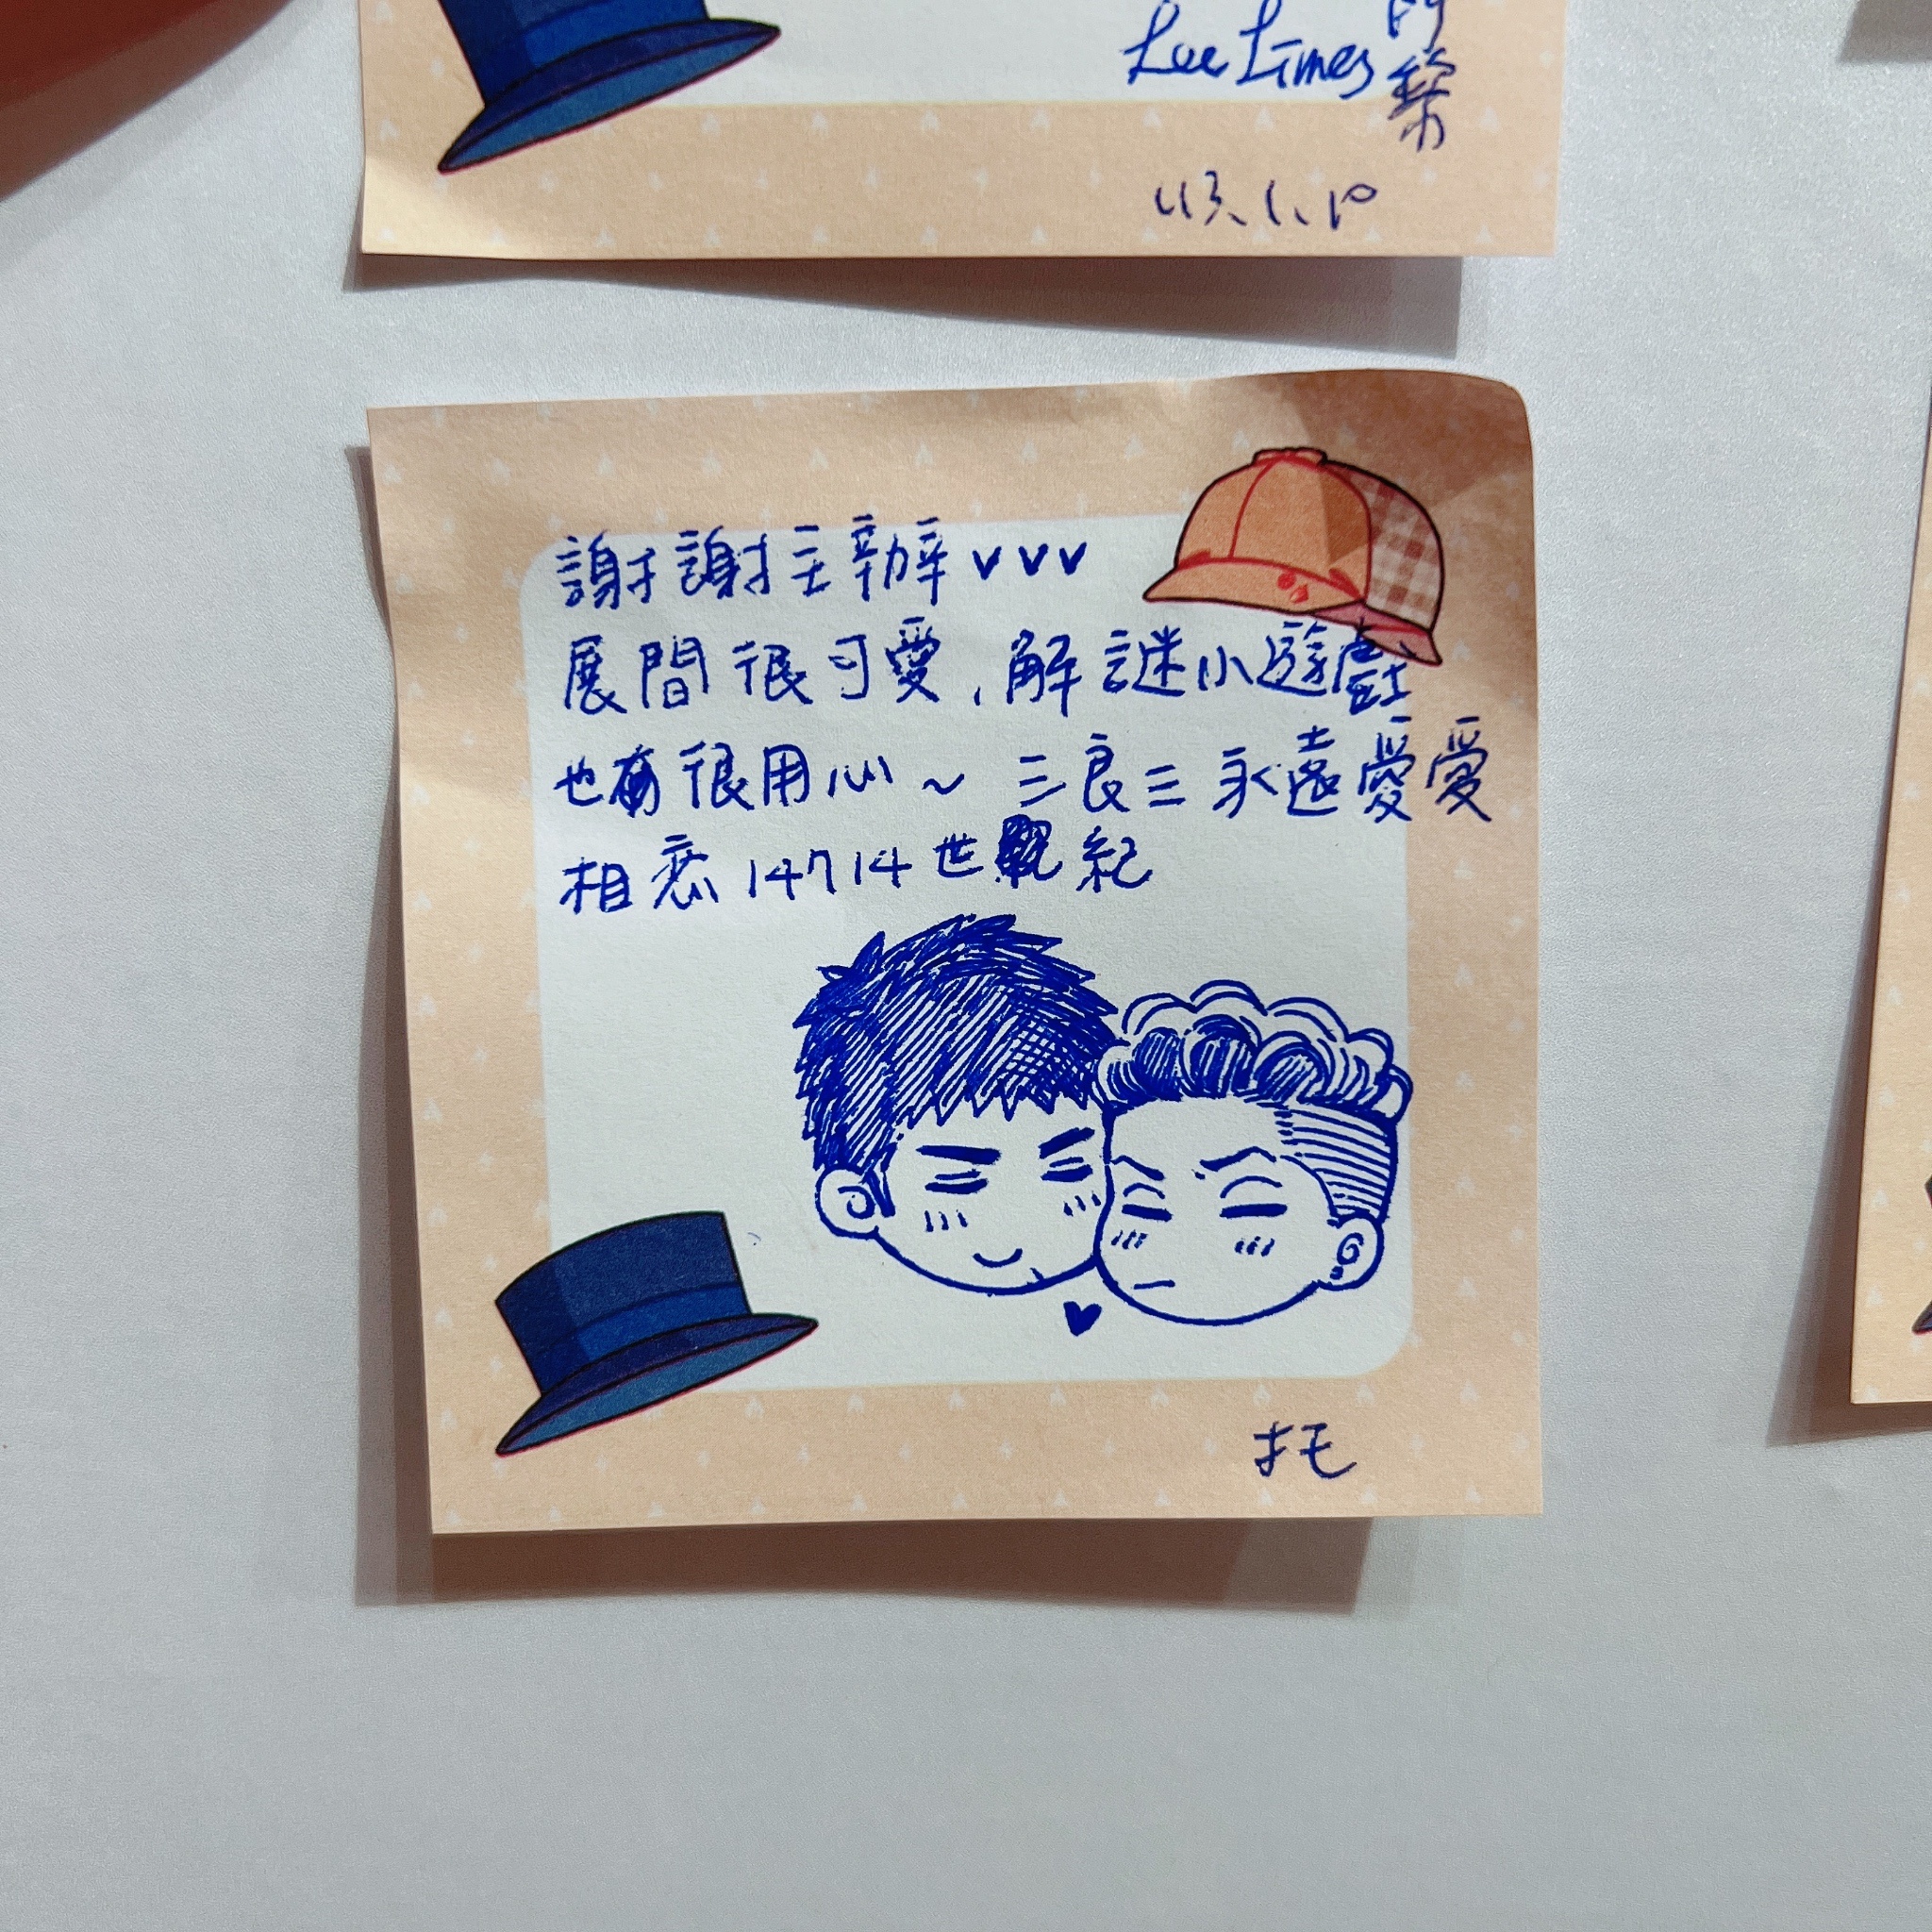 Lee Limes
113.1.10
謝謝主辦vvv
展間很可愛、解謎小遊戲
也有很用心~ 三良三永遠愛愛
相戀14714世紀
托